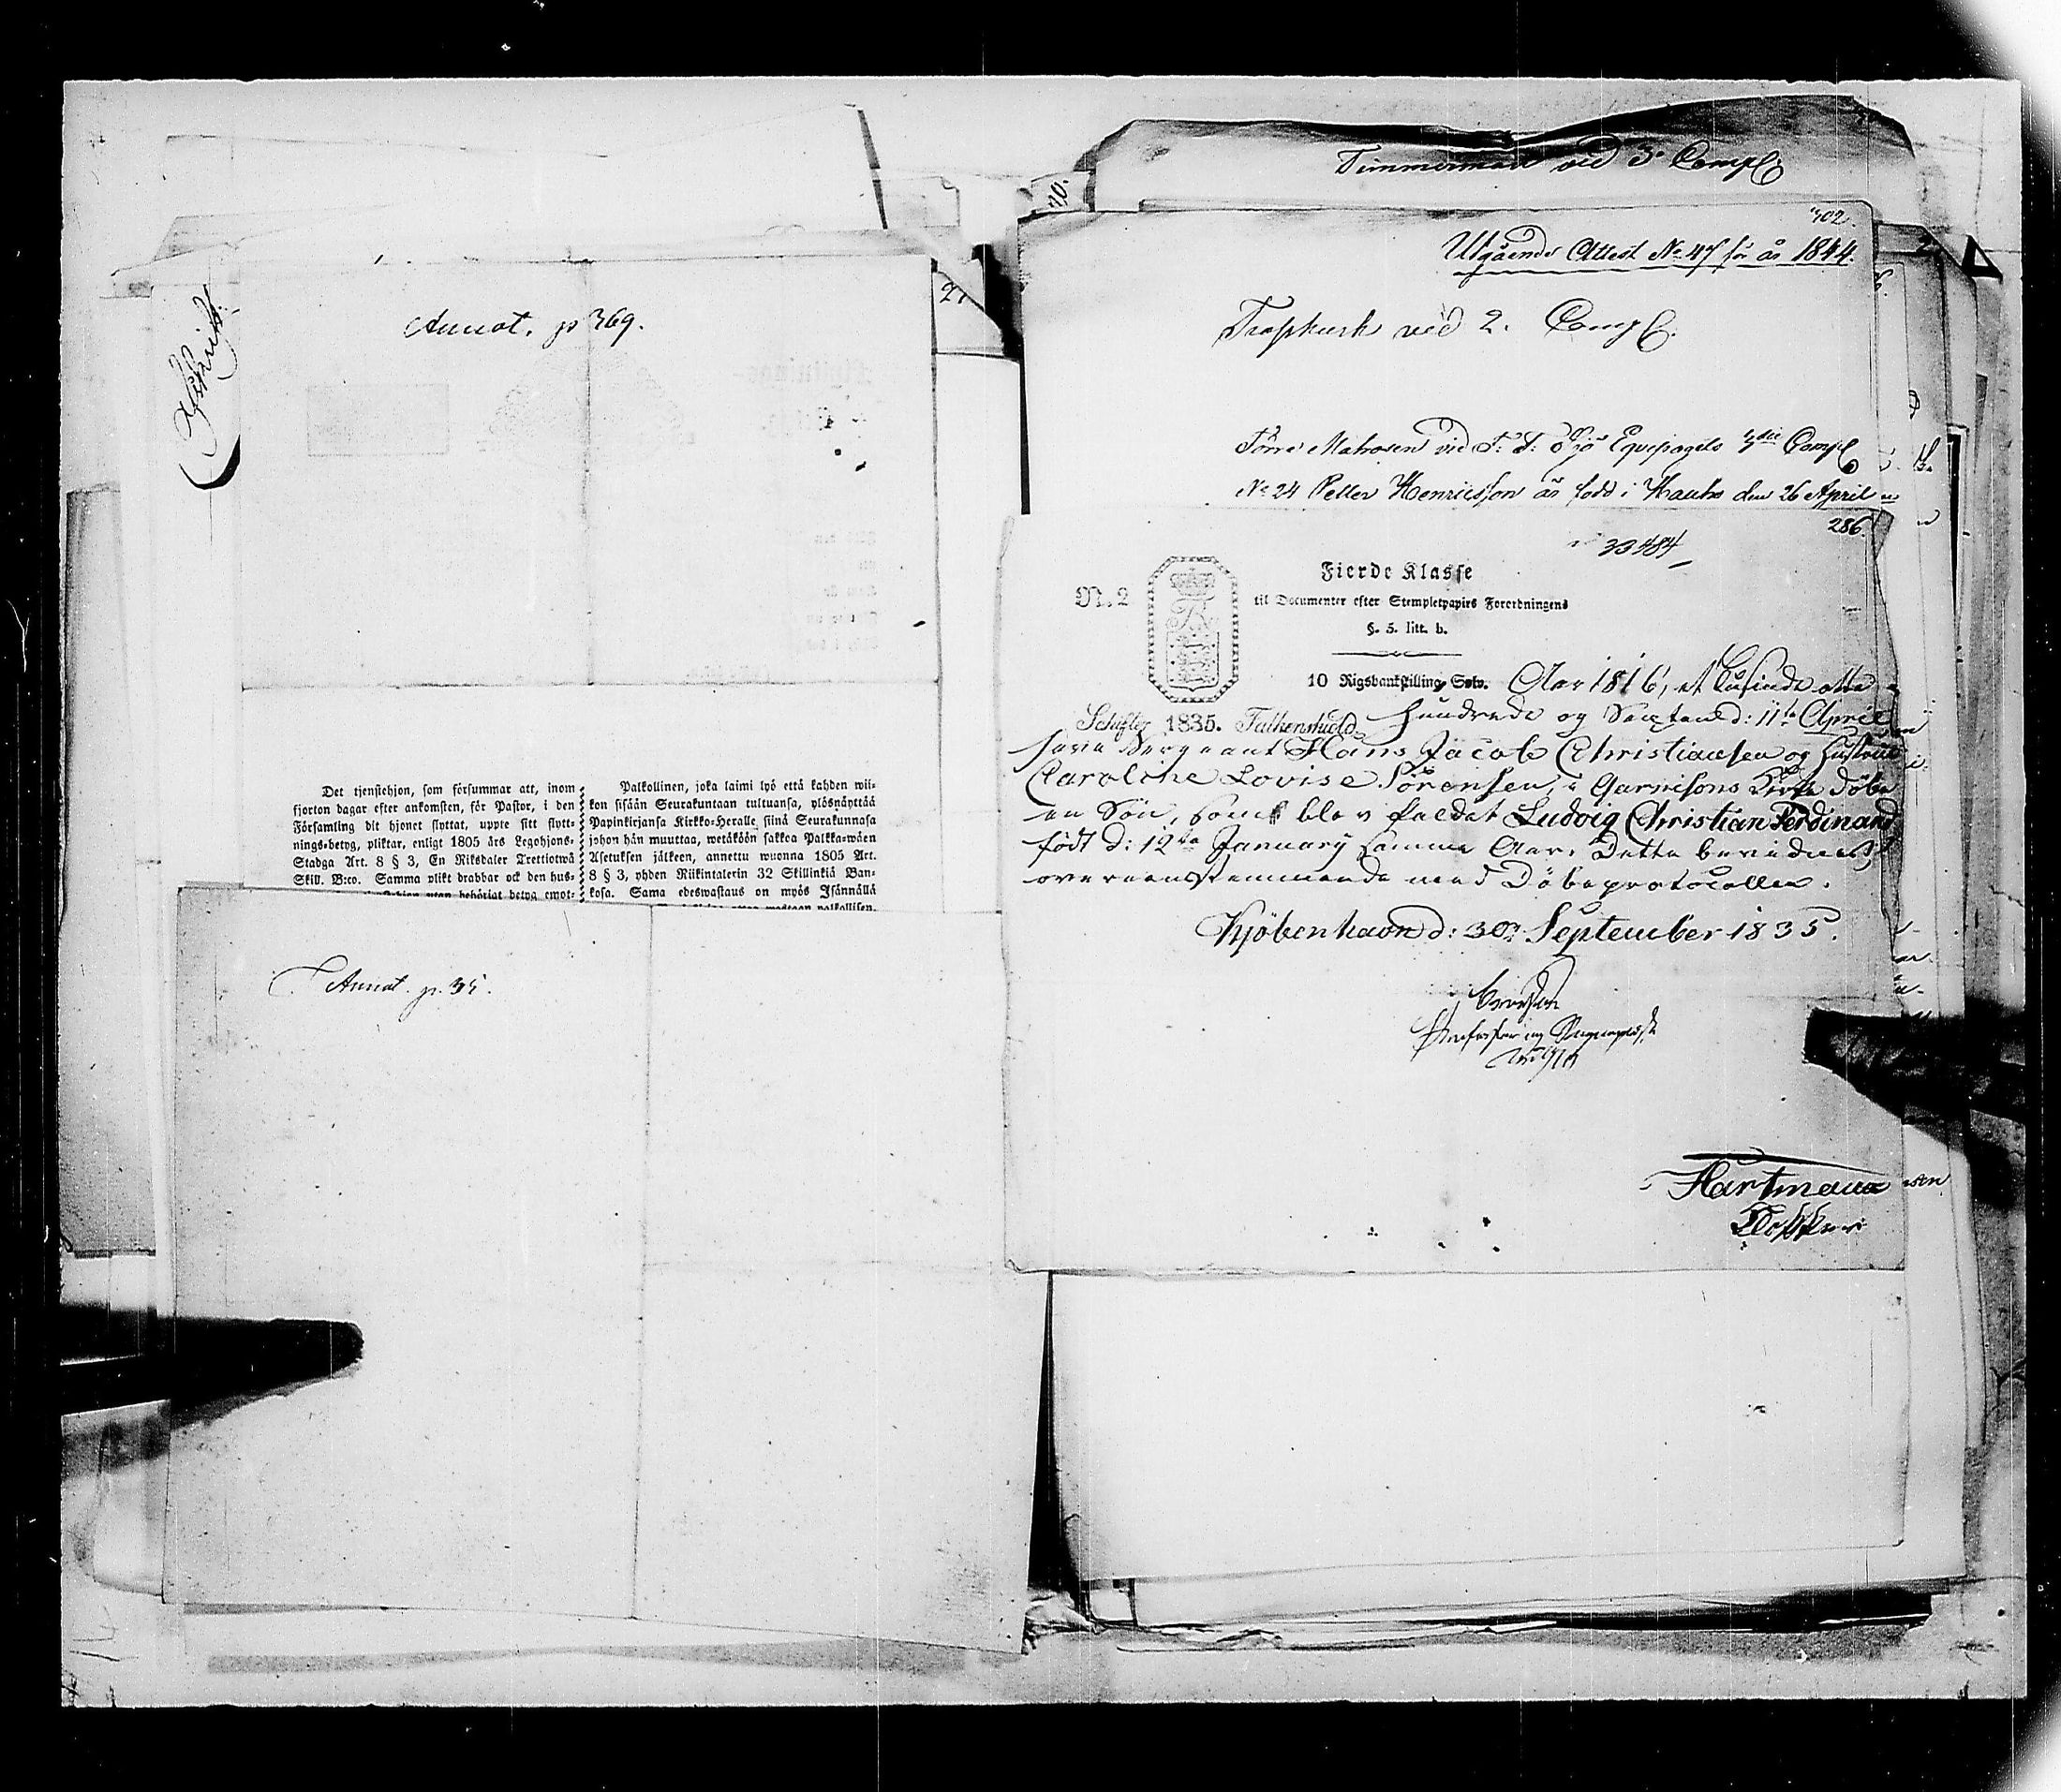 Annot. p 369.
27
Det tjenstehjon, som försummar att, inom
fjorton dagar efter ankomsten, för Pastor, i den
Församling dit hjonet flyttat, uppte sitt flytt-
nings-betyg, pliktar, enligt 1805 års Legohjons-
Stadga Art. 8 § 3, En Riksdaler Trettiotwå
Skill. B:co. Samma plikt drabbar ock den hus-
utan behörigt betyg emot-
Palkollinen, joka laimi lyö että kahden wii-
kon sisään Seurakuntaan tultuansa, ylösnäyttää
Papinkirjansa Kirkko-Heralle siinä Seurakunnasa
johon hän muuttaa, wetäköön sakkoa Palkka-wäen
Asetuksen jälkeen, annettu wuonna 1805 Art.
8 § 3, yhden Riikintalerin 32 Skillinkiä Ban-
kosa. Sama edeswastaus on myös Isännällä
palkollisen,
Annat. p. 35.
Timmerman vid 3. Comp.
20.
402.
Utgående Attest No 47 för år 1844.
vid 2. Comp.
Förre Matrosen vid F: F: Sjö Equipagets Comp
No 24 Petter Henricsson är född i Hauho den 26 April
286.
33484
N. 2
Fierde Klasse
til Documenter efter Stempletpapirs Forordningens
§. 5. litt. b.
10 Rigsbankskilling Sølv. Aar 1816, et tusinde otte
Schifter 1835. Falkenskiold. hundrede og Sexten d: 11te April
have Sergeant Hans Jacob Christiansen og Hustrue
Caroline Lovise Sørensen, i Garnisons Kirke Döbt
en Sön, som blev kaldet Ludvig Christian Ferdinand
födt d: 12te January samme Aar. Dette bevidnes
overeenstemmende med Döbeprotocollen.
Kjöbenhavn d: 30te September 1835.
Hartmann
Klokker